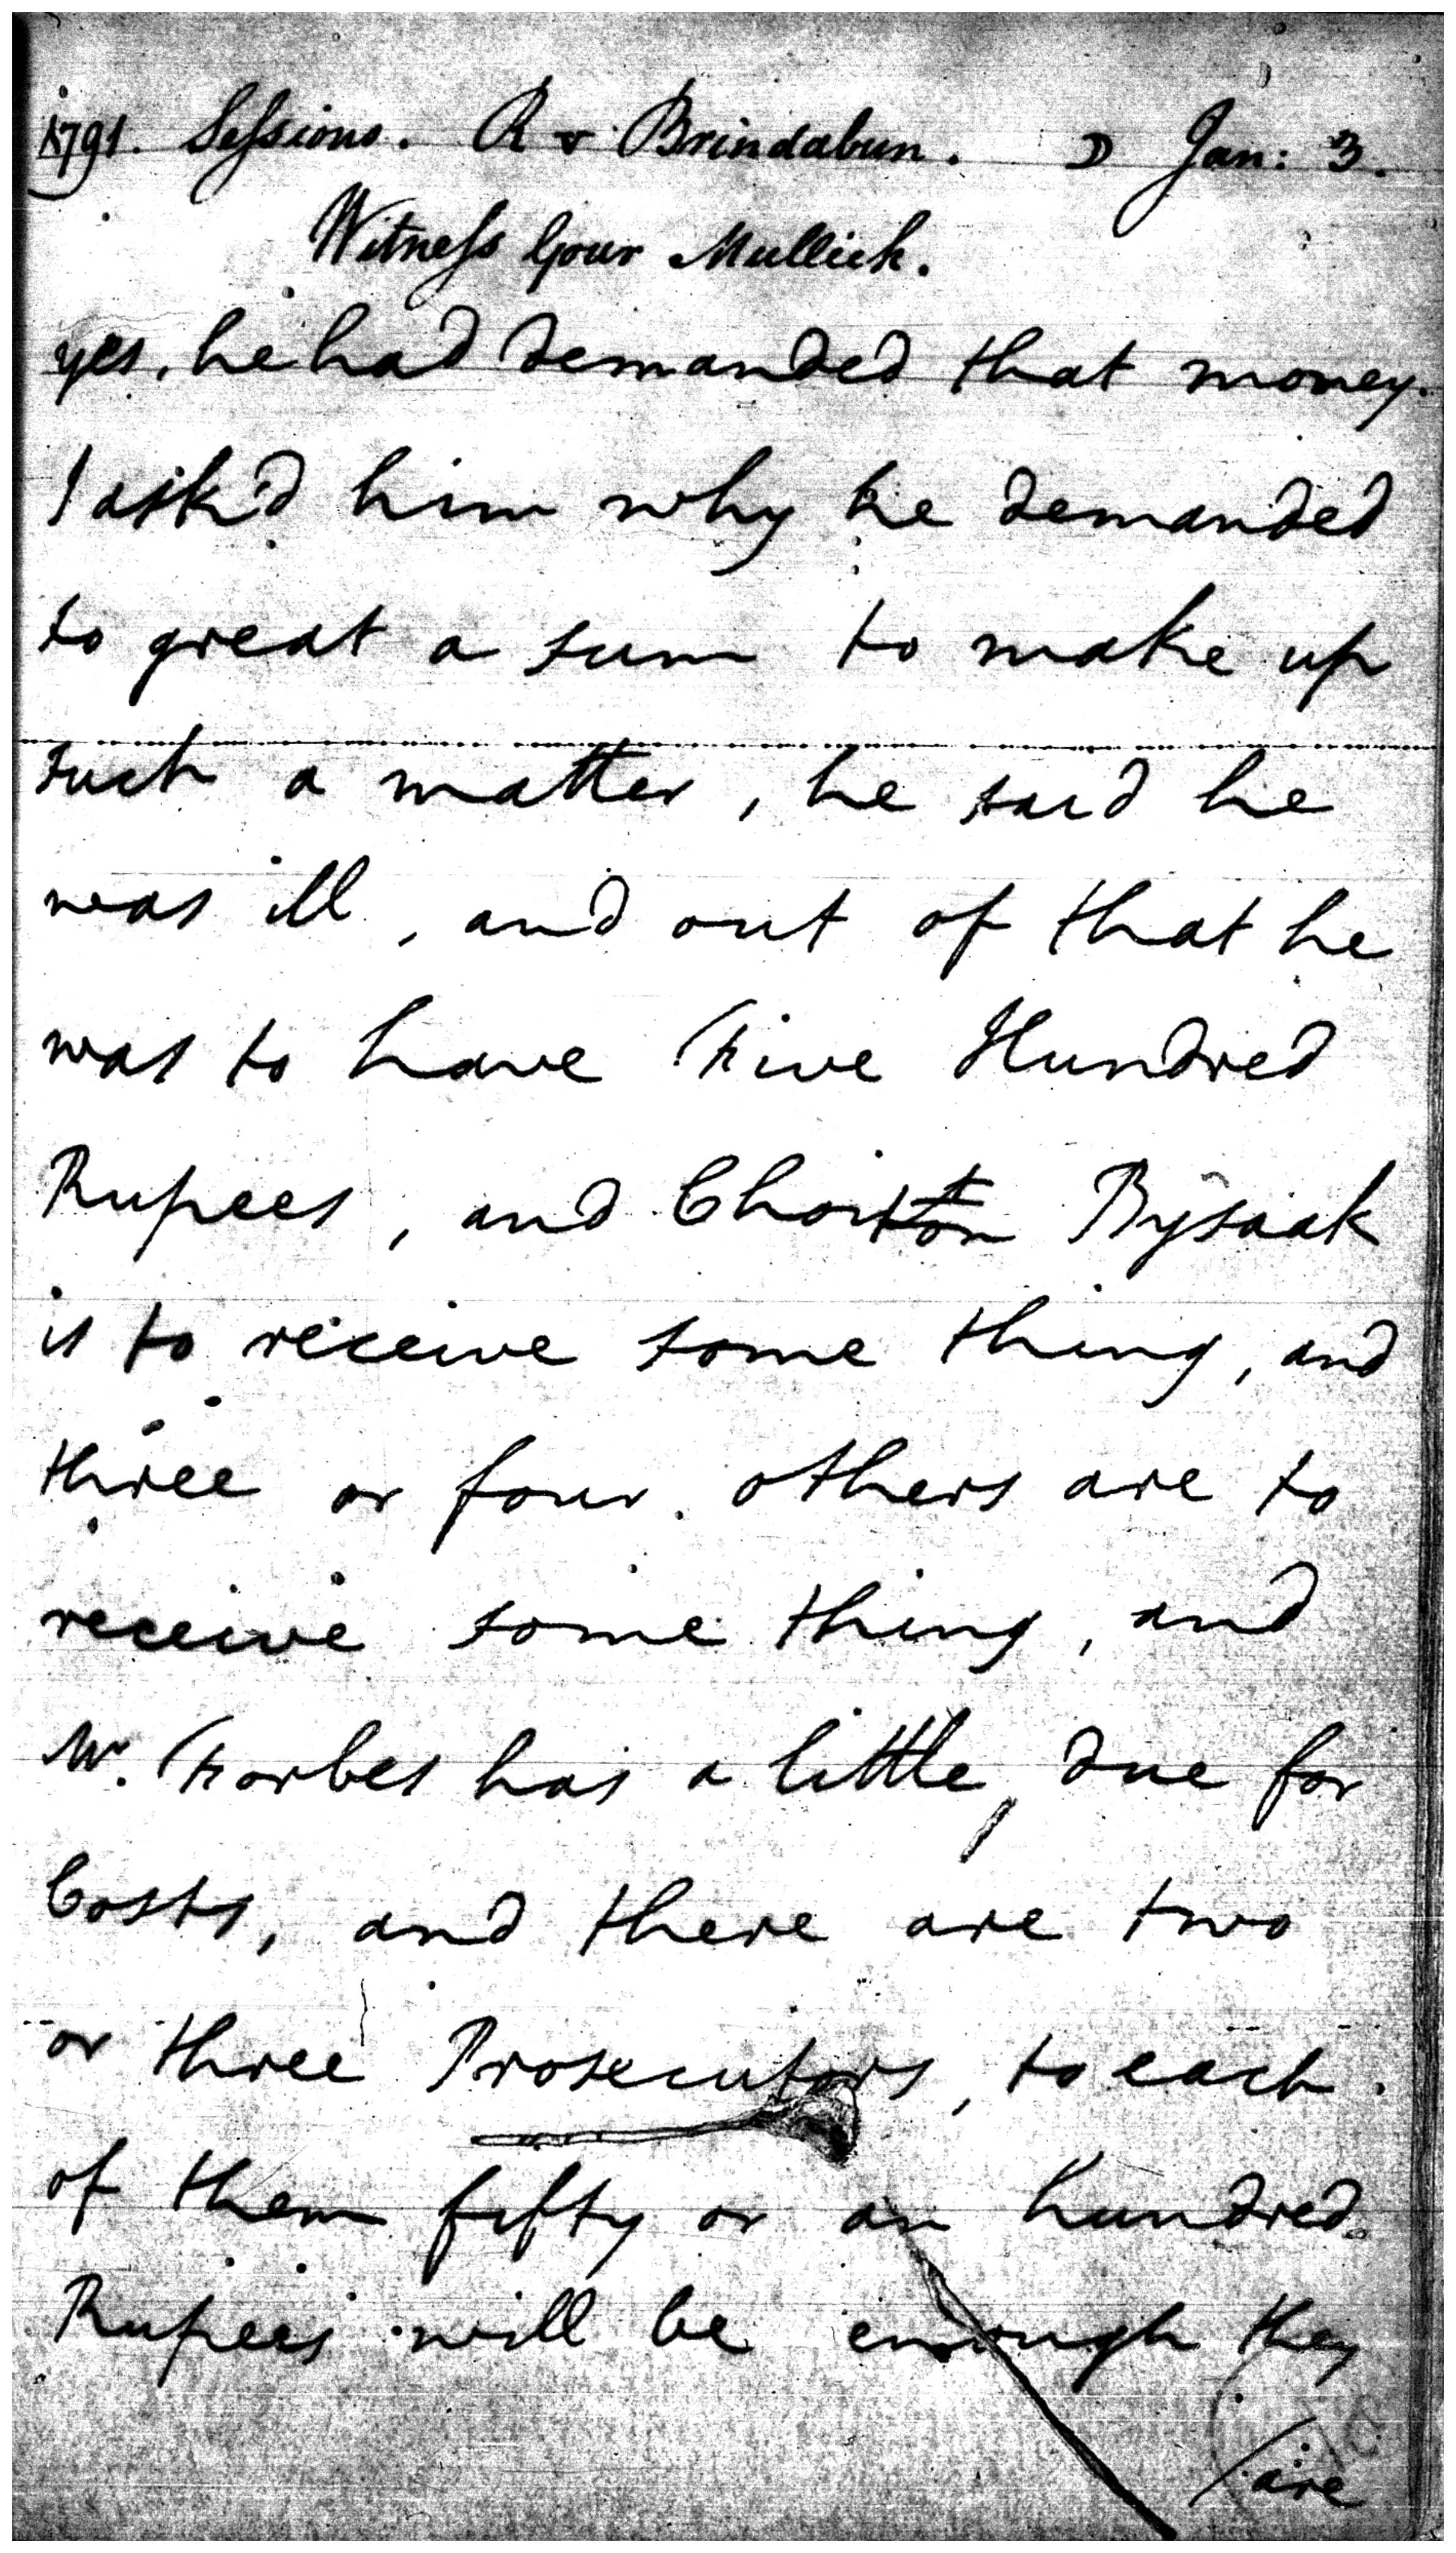 1791. Sessions. R v Brindabun. ☽ Jan: 3.
Witness Gour Mullick.
yes, he had demanded that money.
I ask'd him why he demanded
so great a sum to make up
such a matter, he said he
was ill, and out of that he
was to have Five Hundred
Rupees, and Choiton Bysaak
is to receive some thing, and
three or four others are to
receive some thing, and
Mr. Forbes has a little, due for
Costs, and there are two
or three Prosecutors, to each
of them fifty or an hundred
Rupees will be enough they
/are